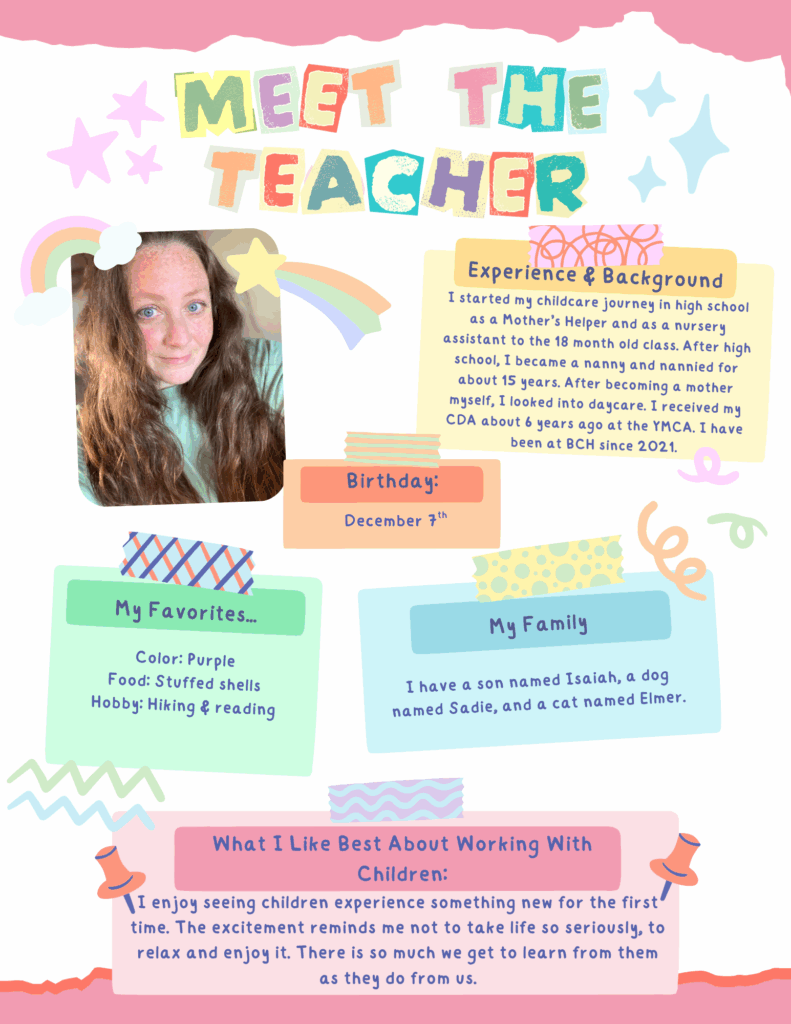 MEET THE
TEACHER
Experience & Background
I started my childcare journey in high school
as a Mother's Helper and as a nursery
assistant to the 18 month old class. After high
school, I became a nanny and nannied for
about 15 years. After becoming a mother
myself, I looked into daycare. I received my
CDA about 6 years ago at the YMCA. I have
been at BCH since 2021.
Birthday:
December 7th
My Favorites...
Color: Purple
Food: Stuffed shells
Hobby: Hiking & reading
My Family
I have a son named Isaiah, a dog
named Sadie, and a cat named Elmer.
What I Like Best About Working With
Children:
I enjoy seeing children experience something new for the first
time. The excitement reminds me not to take life so seriously, to
relax and enjoy it. There is so much we get to learn from them
as they do from us.